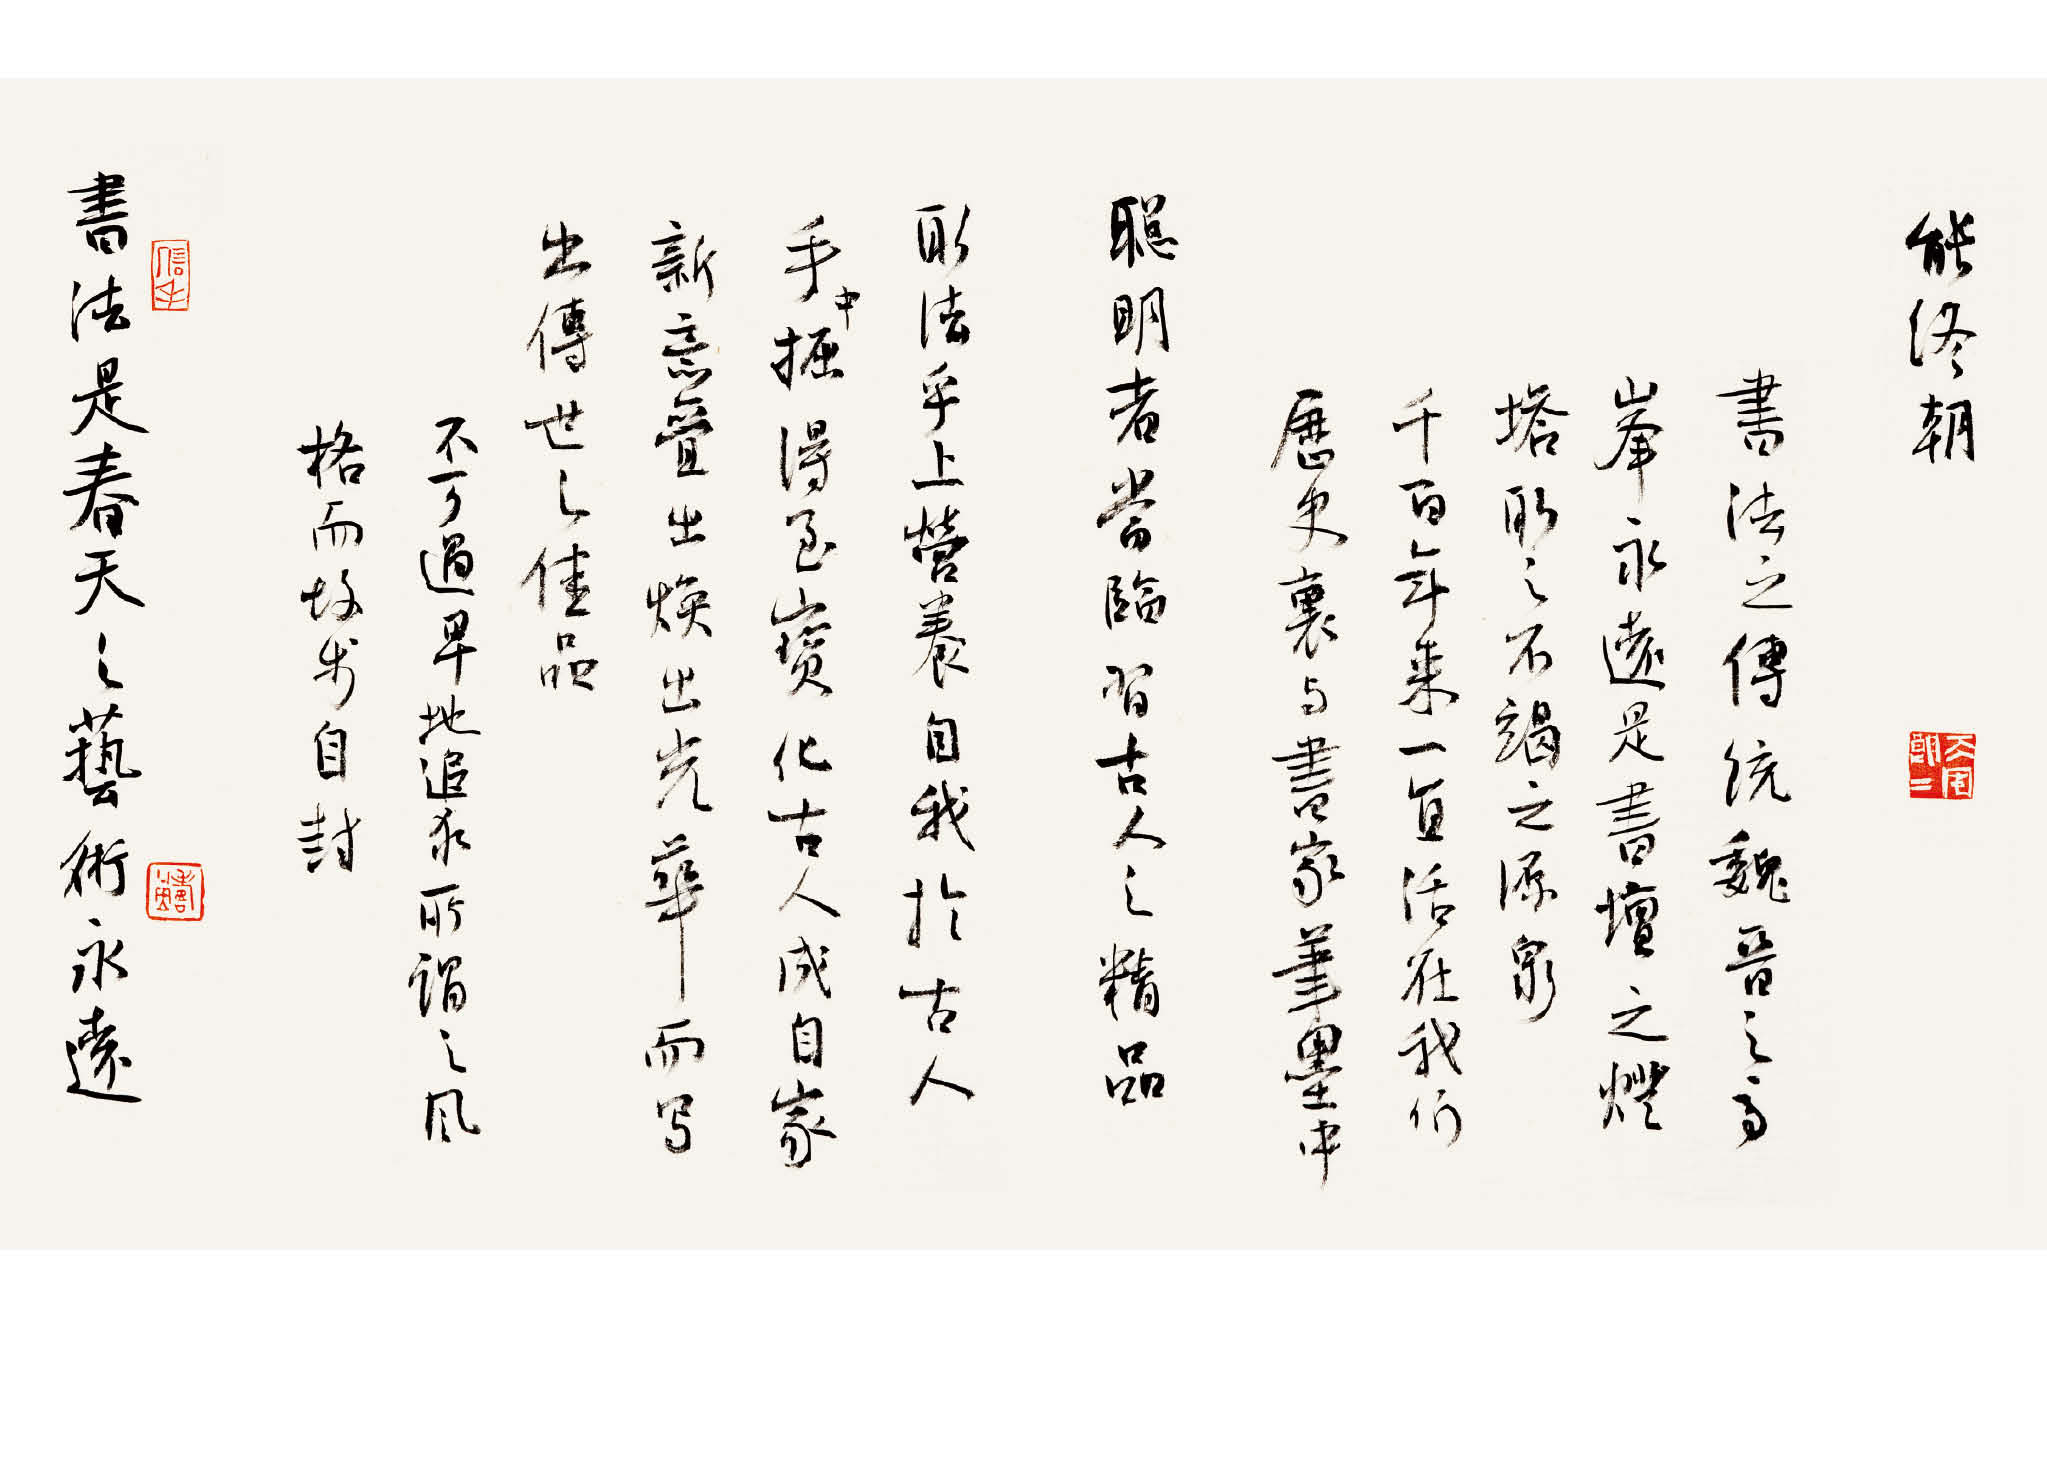 能终朝
書法之傳统魏晋之高
峯永遠是書壇之燈
塔取之不竭之源泉
千百年来一直活在我们
歷史裏与書家筆墨中
聪明者當臨習古人之精品
取法乎上營養自我於古人
手中掘得至寶化古人成自家
新意疊出焕出光華而写
出傳世之佳品
不可過早地追求所謂之风
格而故步自封
書法是春天之藝術永遠